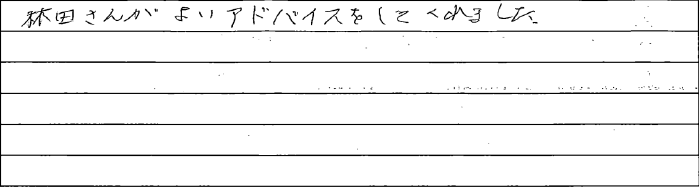 林田さんがよいアドバイスをしてくれました。